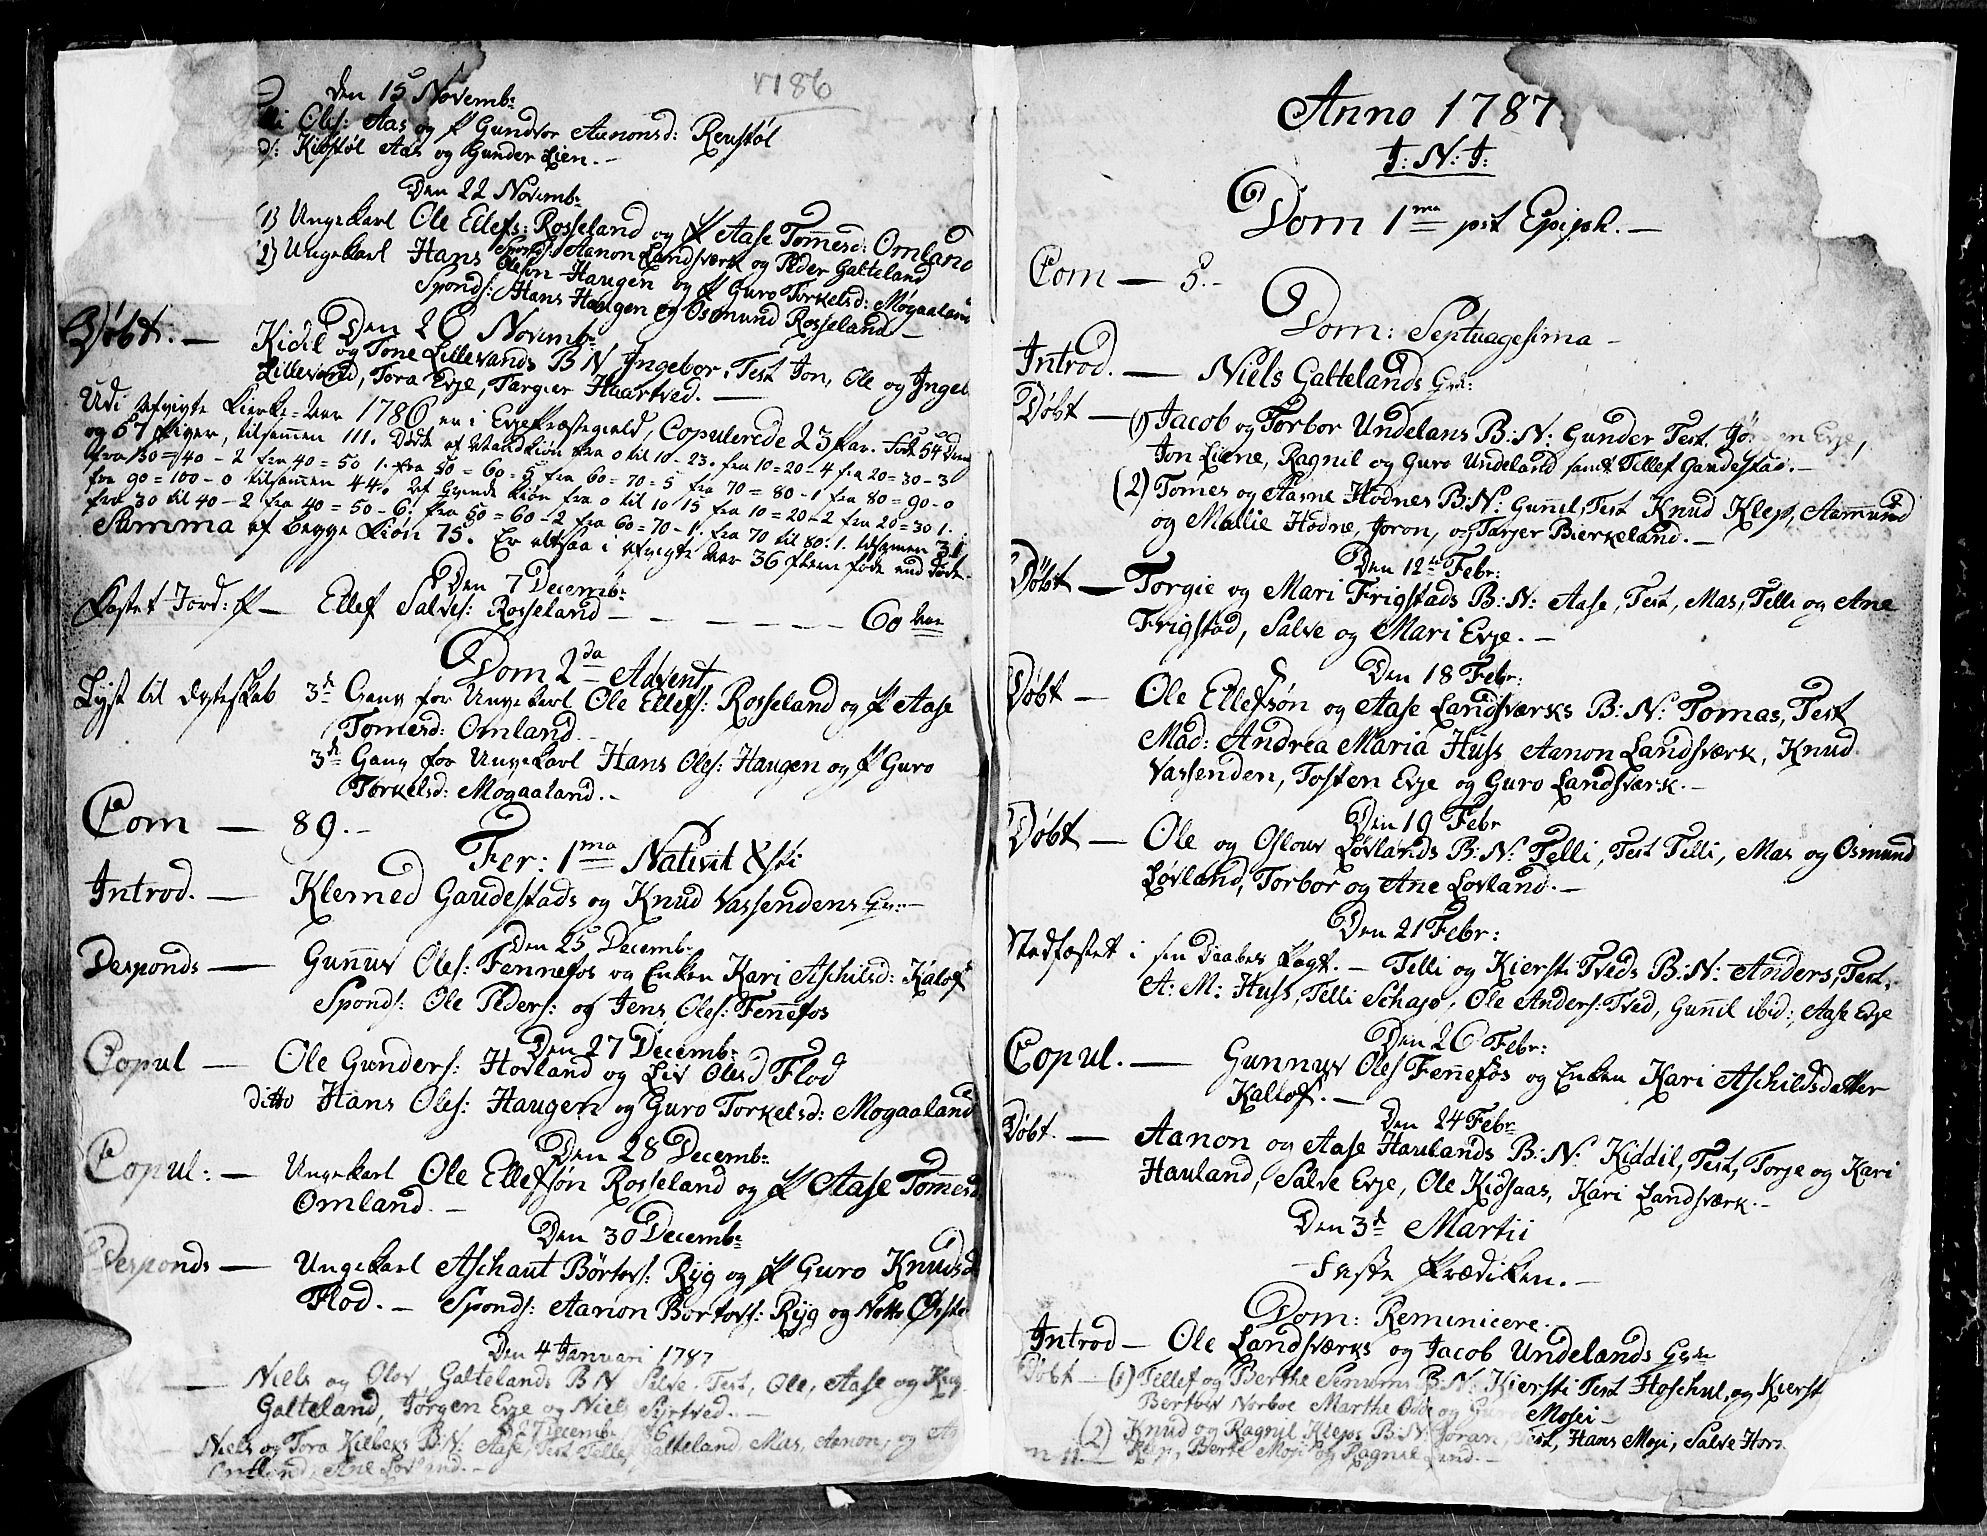 1786
Den 15 Novemb:
Ols: Aas og P Gundvor Aanonsd: Reustøl
Kibstøl Aas og Gunder Lien. –
Den 22 Novemb:
(1) Ungekarl Ole Ellefs: Rosseland og P Aase Tom̄esd: Omland
Sponds: Aanon Landsværk og Peder Galteland
(2) Ungekarl Hans Olesøn Haugen og P Guro Torkelsd: Mogaaland
Sponds: Hans Haugen og Osmund Rosseland –
Den 26 Novemb:
Døbt. – Kidil og Tone Lillevands B N Ingebor. Test Jon, Ole og Ingeb
Lillevand, Tora Evje, Targier Haartved. –
Udi afvigte Kierke-Aar 1786 er i Evje Præstegield, Copulerede 23 Par. Født 54
og 57 Piger, tilsam̄en 111. Døde af Mandkiøn fra 0 til 10 - 23. fra 10=20 - 4 fra 20=30 - 3
fra 30=40 - 2 fra 40=50 1. fra 50=60 - 5 fra 60=70 - 5 fra 70=80 - 1 fra 80=90 - 0
fra 90=100 - 0 tilsam̄en 44. Af Qvinde Kiøn fra 0 til 10 15 fra 10=20 - 2 fra 20=30 1.
fra 30 til 40 - 2 fra 40=50 - 6. fra 50=60 - 2 fra 60=70 - 1. fra 70 til 80. 1. tilsam̄en 31.
Summa af begge Kiøn 75. Er altsaa i afvigte Aar 36 fleere føde end døde.
Den 7 Decemb:
Fæstet Jord: P – Ellef Salves: Rosseland – – – – – – 60 Aar
Dom 2da Advent
Lyst til Ægteskab 3de Gang for Ungekarl Ole Ellefs: Rosseland og P Aase
Tom̄esd: Omland –
3de Gang for Ungekarl Hans Oles: Haugen og P Guro
Torkelsd: Mogaaland. –
Com – 89. –
Fer: 1ma Nativit Xsti
Introd. – Klemed Gaudestads og Knud Vassendens
Den 25 Decemb:
Desponds – Gun̄uv Oles: Fennefos og Enken Kari Aschilsd: Kalof
Sponds: Ole Peders: og Jens Oles: Fen̄efos
Den 27 Decemb:
Copul – Ole Gunders: Hovland og Liv Olesd Flod
ditto Hans Oles: Haugen og Guro Torkelsd: Mogaaland
Den 28 Decemb:
Copul: – Ungekarl Ole Ellefsøn Rosseland og P Aase Tom̄esd
Omland. –
Den 30 Decemb:
Desponds – Ungekarl Aschaut Børtevs: Ryg og P Guro Knudsd
Flod. – Sponds: Aanon Bortevs: Ryg og
Den 4 Januari 1787
Niels og Olov Galtelands B N Salve. Test, Ole, Aase og
Galteland, Jørgen Evje og Niels –
Den 27 Decemb:
Niels og Tora Kilbers B: N: Aase, Test Tellef Galteland Mas, Aanon, og
Ane Lovland. –
Anno 1787
J: N: J:
Dom 1ma pst Epiph. –
Com – 5. –
Dom: Septuagesima –
Introd. – Niels Galtelands
Døbt – (1) Jacob og Torbor Undelans B: N: Gunder Test. Jørgen Evje,
Jon Liene, Ragnil og Guro Undeland samt Tellef Gaudestad. –
(2) Tom̄es og Aasne Hodnes B: N: Gun̄il, Test Knud Klep, Aam̄und
og Mallie Hodne, Joron, og Tarjer Bierkeland. –
Den 12te Febr:
Døbt – Torgie og Mari Frigstads B: N: Aase, Test, Mas, Telli og Ane
Frigstad, Salve og Mari Evje. –
Den 18 Febr:
Døbt – Ole Ellefsøn og Aase Landsværks B: N: Tomas, Test
Mad: Andrea Maria Huss Aanon Landsværk, Knud
Vassenden, Tosten Evje og Guro Landsværk. –
Den 19 Febr
Døbt – Ole og Olouv Løvlands B: N: Telli, Test Telli, Mas og Osmund
Løvland, Torbor og Ane Lovland. –
Den 21 Febr:
Stadfæstet i sin Daabes Pagt. – Telli og Kiersti Tveds B: N: Anders, Test,
A: M: Huss, Telli Schajo, Ole Anders: Tved, Gun̄il ibid:, Aase Evje
Den 26 Febr:
Copul. – Gunnuv Oles Fen̄efos og Enken Kari Aschildsdatter
Kallof. –
Den 24 Febr
Døbt. – Aanon og Aase Haulands B: N: Kiddil, Test, Torje og Kari
Hauland, Salve Evje, Ole Kidsaas, Kari Landsværk. –
Den 3de Martii
– Faste Prædiken. –
Dom: Reminicere.
Introd – Ole Landsværks og Jacob Undelands
Døbt – (1) Tellef og Berthe Senums B: N: Kiersti Test Hoschul, og Kierst
Berthev Norboe Marthe Odde og Guro Mosei –
(2) Knud og Ragnil Kleps B: N: Joran, Test, Hans Mosi, Salve
Klep, Berte Mosi og Ragnil